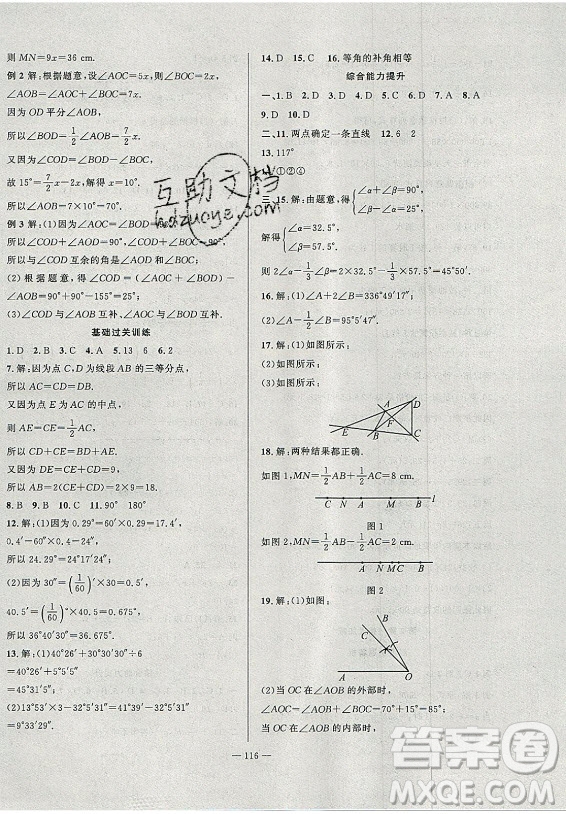 则 MN=9x=36 cm.
例 2 解:根据题意,设∠AOC=5x,则∠BOC=2x,
∠AOB=∠AOC+∠BOC=7x.
因为 OD 平分∠AOB,
所以∠BOD=1/2∠AOB=7/2x.
又因为∠COD=∠BOD-∠BOC,
故 15°=7/2x-2x,解得 x=10°.
所以∠AOB=7×10°=70°.
例 3 解:(1)因为∠AOC=
所以∠COD+∠AOD=90°,∠COD+∠BOC=90°.
所以与∠COD 互余的角是∠AOD 和∠BOC;
(2)根据题意,得∠COD=(∠AOC+∠BOD)-
∠AOB=90°+90°-155°=25°;
(3)∠COD 与∠AOB 互补,∠AOC 与∠BOD 互补.
基础过关训练
1.D 2.B 3.C 4.A 5.13 6 6.2
7.解:因为点 C,D 为线段 AB 的三等分点,
所以 AC=CD=DB.
又因为点 E 为 AC 的中点,
则 AE=CE=1/2AC.
所以 CD+CE=DB+AE.
又因为 DE=CE+CD=9,
所以 AB=2(CE+CD)=2×9=18.
8.B 9.B 10.C 11.90° 180°
12.解:(1)因为 0.29°=60′×0.29=17.4′,
0.4′=60″×0.4=24″,
所以 24.29°=24°17′24″.
(2)因为 30″=(1/60)′×30=0.5′,
40.5′=(1/60)°×40.5=0.675°,
所以 36°40′30″=36.675°.
13.解:(1)40°26′+30°30′30″÷6
=40°26′+5°5′5″
=45°31′5″;
(2)13°53′×3-32°5′31″
=41°39′-32°5′31″
=9°33′29″.
14.D 15.C 16.等角的补角相等
综合能力提升
一、1.B 2.D 3.C 4.A 5.B 6.D 7.B 8.A
9.D 10.D
二、11.两点确定一条直线 12.6 2
13.117°
①②④
三、15.解:由题意,得{∠α+∠β=90°,
∠α=1/2∠β+
解得{∠α=32.5°,
∠β=57.5°.
则 2∠α-1/3∠β=2×32.5°-1/3×57.5°=45°50′.
16.解:(1)∠A+2∠B=336°47′50″.
(2)1/2∠A+1/3∠B=95°5′50″.
17.解:(1)如图所示:
(2)如图所示:
(3)如图所示:
A D
E B F C
18.解:两种结果都正确.
如图 1,MN=1/2AB+1/2AC=8 cm.
C N A M B l
图 1
如图 2,MN=1/2AB-1/2AC=2 cm.
A N M C B
图 2
19.解:(1)如图:
A O
(2)当 OC 在∠AOB 的外部时,
∠AOC=∠AOB+∠BOC=70°+15°=85°;
当 OC 在∠AOB 的内部时,
— 116 —
互助文档
hdzuoye.com
作业帮答案圈
MXQE.COM